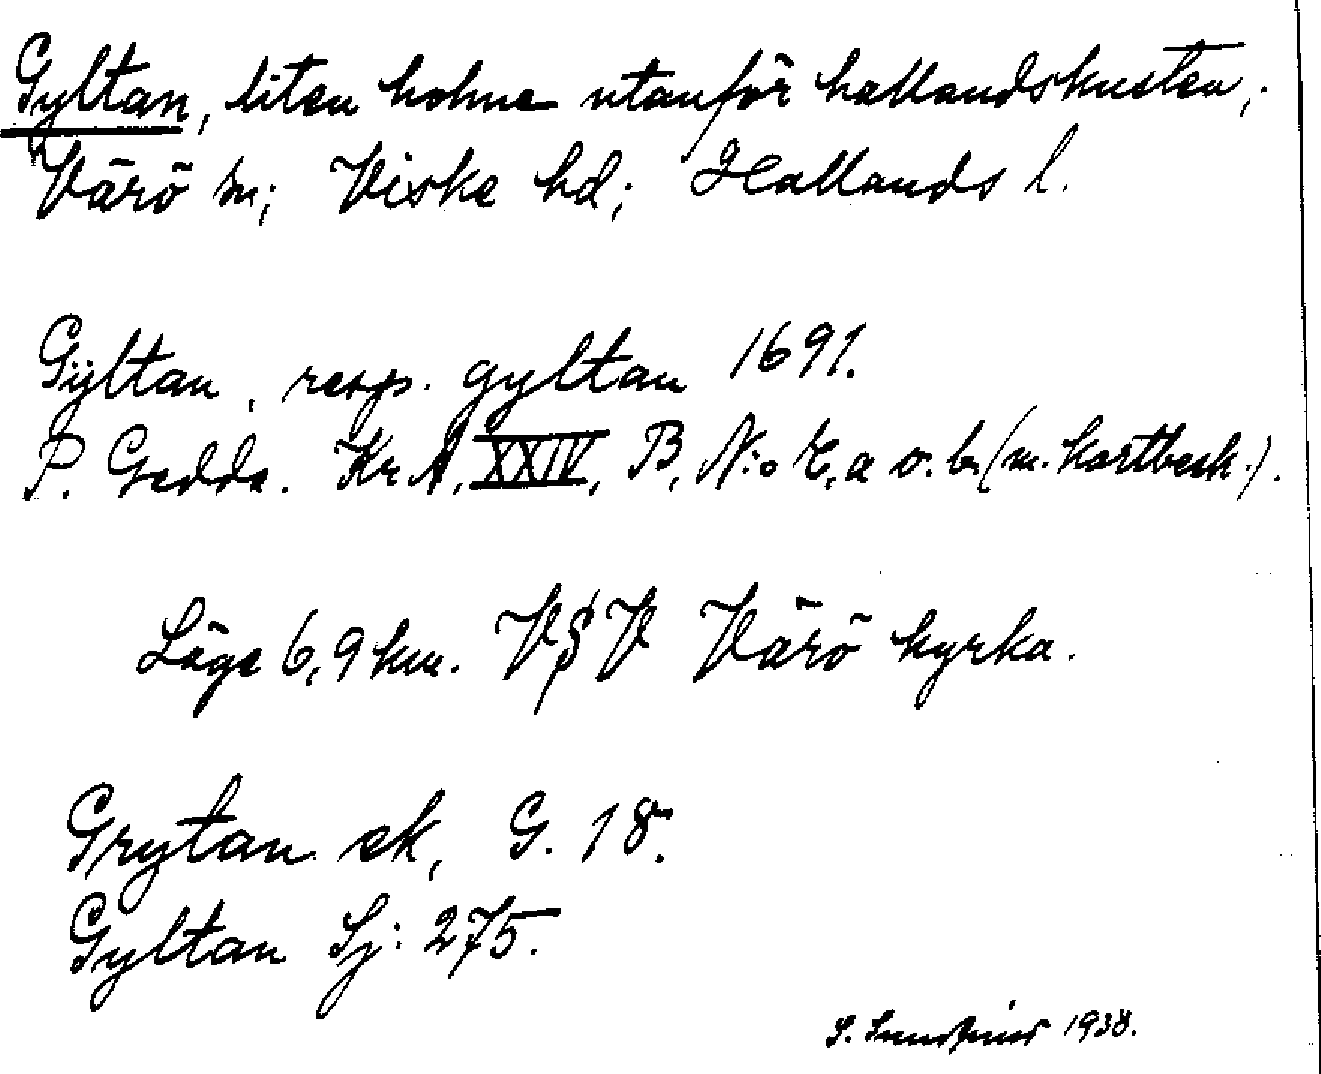 Gyltan, liten holme utanför hallandskusten,
Värö sn; Viske hd; Hallands l.
Gÿltan, resp. gyltan 1691.
P. Gedda. Kr. A, XXIV, B, N:o 7, a o. b. (m. kortbesk.).
Läge 6,9 km. VSV Värö kyrka.
Grytan ek, G. 18.
Gyltan Sj: 275.
S. 1938.